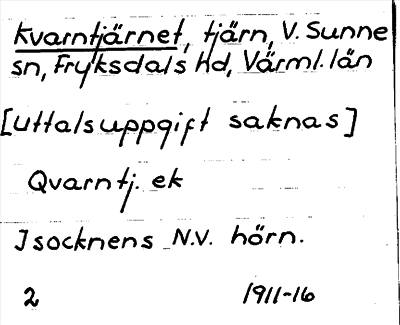 Kvarntjärnet, tjärn, V. Sunne
sn, Fryksdals Hd, Värml. län
[uttalsuppgift saknas]
Qvarntj. ek
I socknens N.V. hörn.
2 1911-16